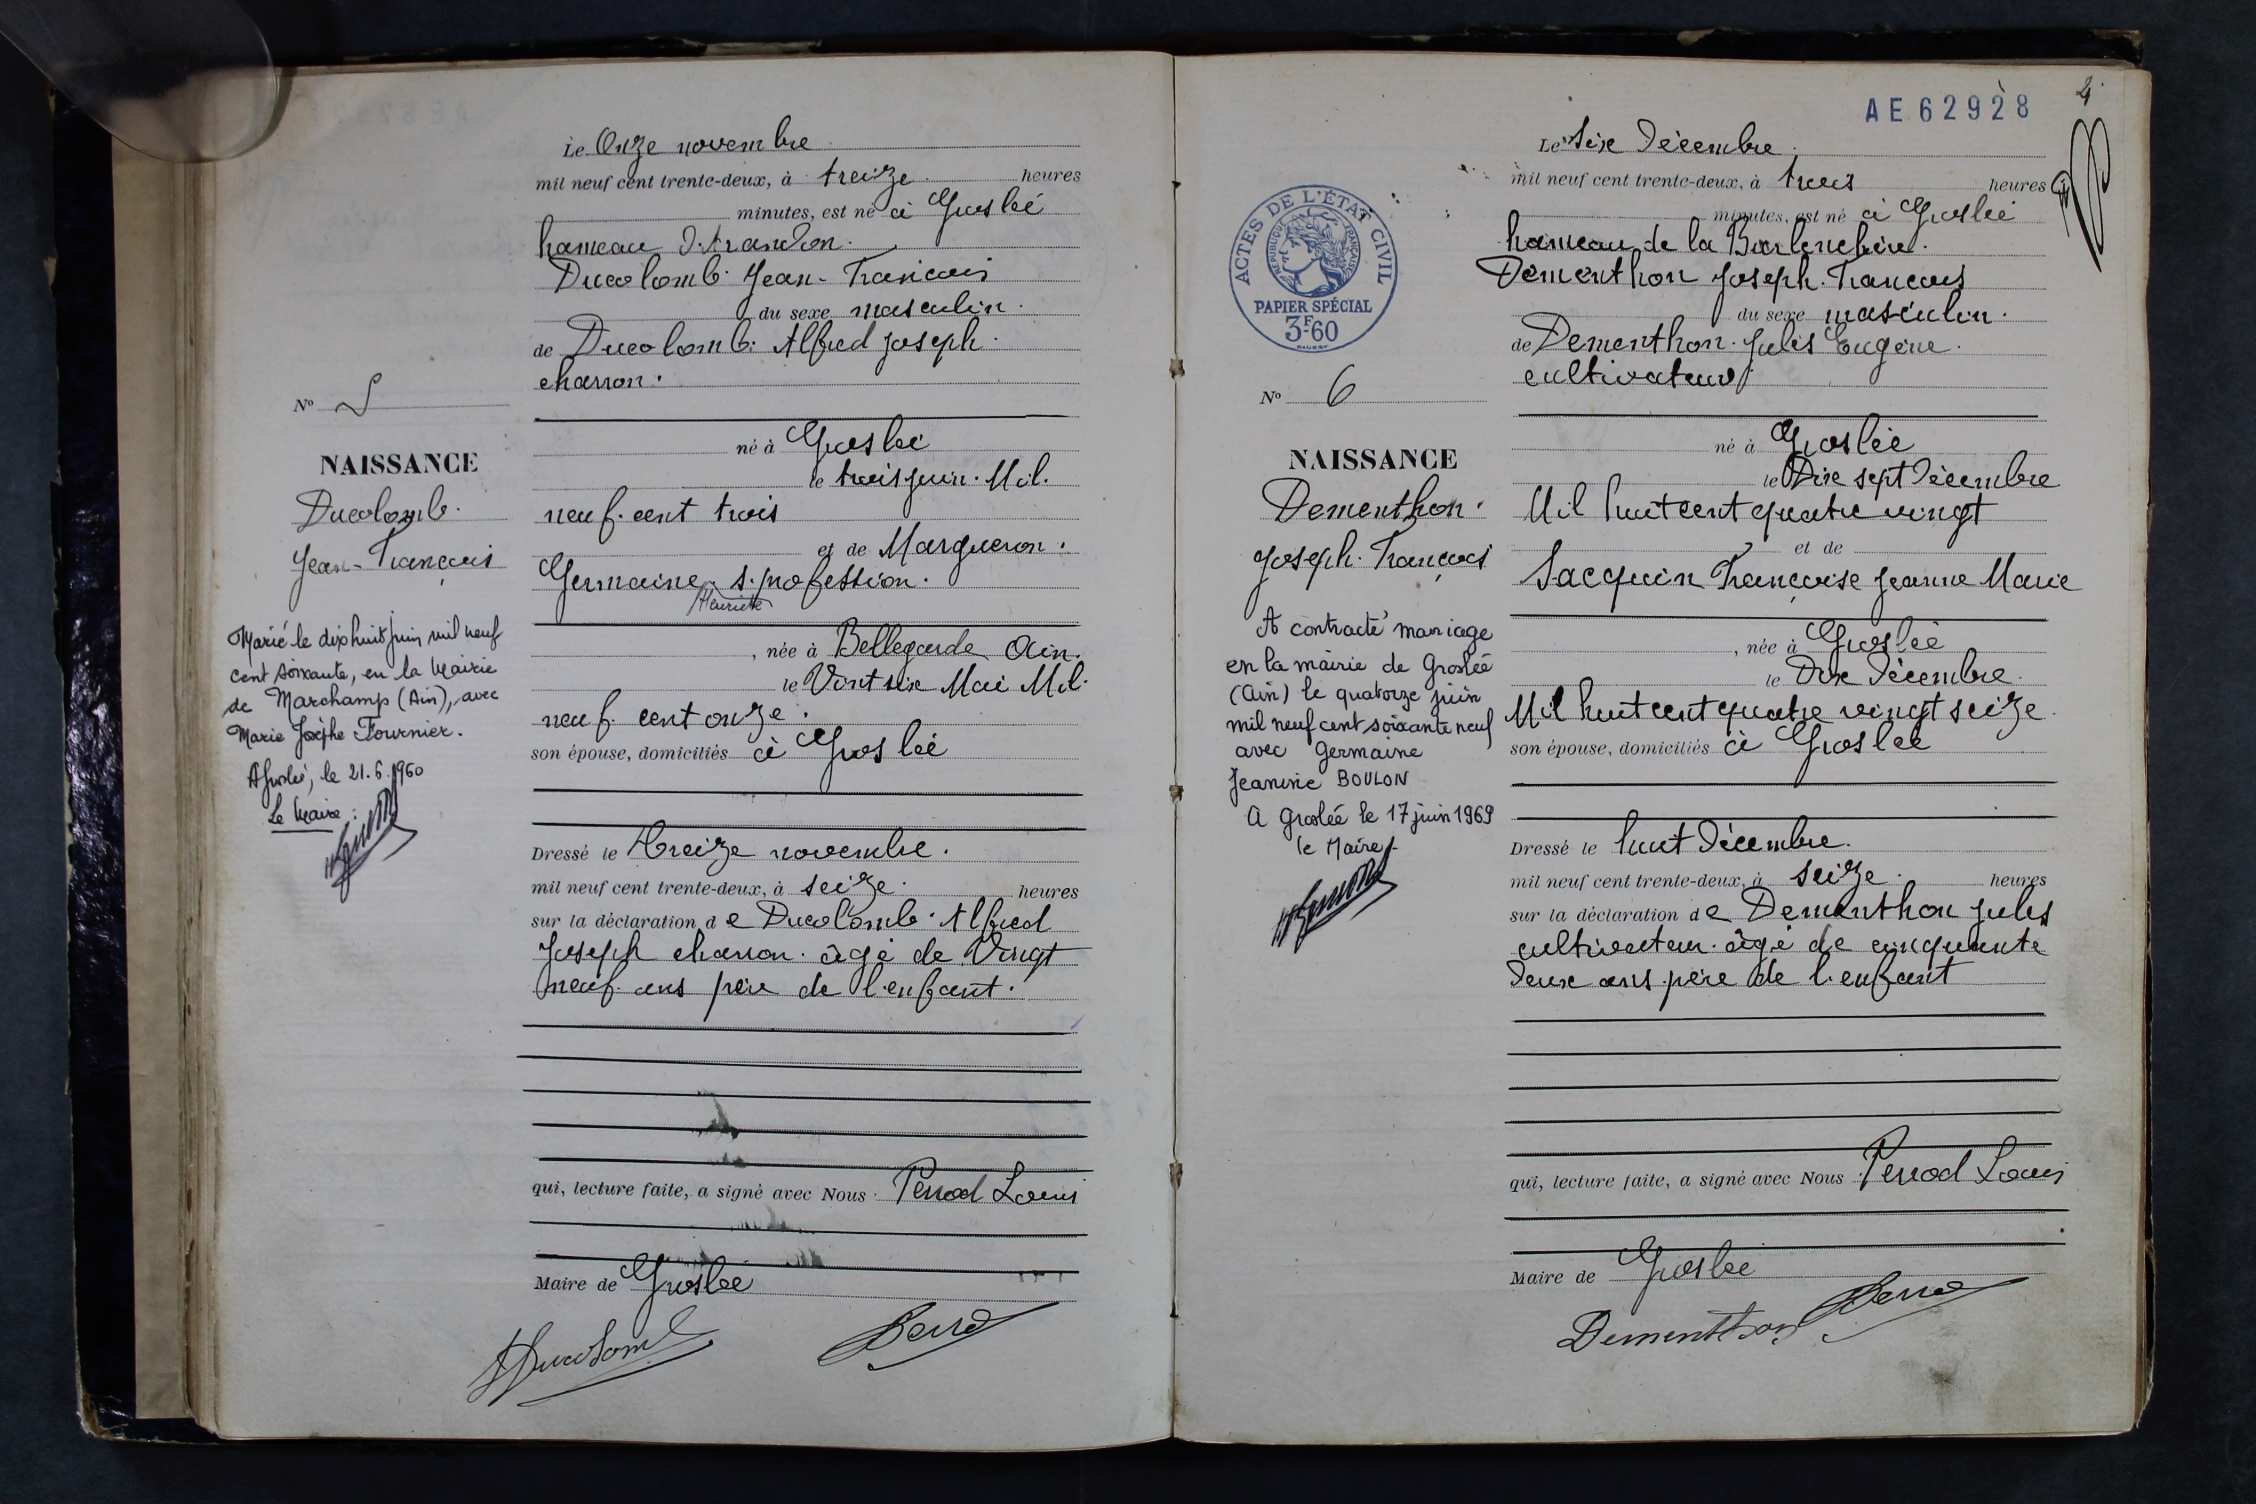 Le Onze novembre
mil neuf cent trente-deux, à treize heures
minutes, est né à Groslée
hameau d'Arandon.
Ducolomb. Jean-François
du sexe masculin.
de Ducolomb. Alfred Joseph.
charron.
né à Groslée
le trois juin. Mil.
neuf. cent trois
et de Margueron.
Germaine. s. profession.
Henriette
, née à Bellegarde Ain.
le Vint six Mai Mil.
neuf. cent onze.
son épouse, domiciliés à Groslée
Dressé le Treize novembre.
mil neuf cent trente-deux, à seize. heures
sur la déclaration de Ducolomb. Alfred
Joseph charron. âgé de Vingt
neuf. ans père de l'enfant.
qui, lecture faite, a signé avec Nous. Perrod Louis
Maire de Groslée
ADucolomb
Perrod
No 5
NAISSANCE
Ducolomb.
Jean-François
Marié le dix huit juin mil neuf
cent soixante, en la Mairie
de Marchamp (Ain), avec
Marie Josèphe Fournier.
A Groslée, le 21.6.1960
Le Maire :
AE62928
4
Le Six Décembre.
mil neuf cent trente-deux, à trois heures
minutes, est né à Groslée
hameau de la
Dementhon Joseph. François
du sexe masculin.
de Dementhon. Jules Eugène.
cultivateur
né à Groslée
le Dix sept Décembre
Mil huit cent quatre vingt
et de
Sacquin Françoise Jeanne Marie
, née à Groslée
le Dix Décembre.
Mil huit cent quatre vingt seize.
son épouse, domiciliés à Groslée
Dressé le huit Décembre.
mil neuf cent trente-deux, à seize. heures
sur la déclaration de Dementhon Jules
cultivateur. âgé de cinquante
deux ans. père de l'enfant
qui, lecture faite, a signé avec Nous Perrod Louis
Maire de Groslée
Dementhon
Perrod
ACTES DE L'ÉTAT CIVIL
RÉPUBLIQUE FRANÇAISE
PAPIER SPÉCIAL
3F60
No 6
NAISSANCE
Dementhon.
Joseph. François
A contracté mariage
en la mairie de Groslée
(Ain) le quatorze juin
mil neuf cent soixante neuf
avec Germaine
Jeannine BOULON
A Groslée le 17 juin 1969
le Maire